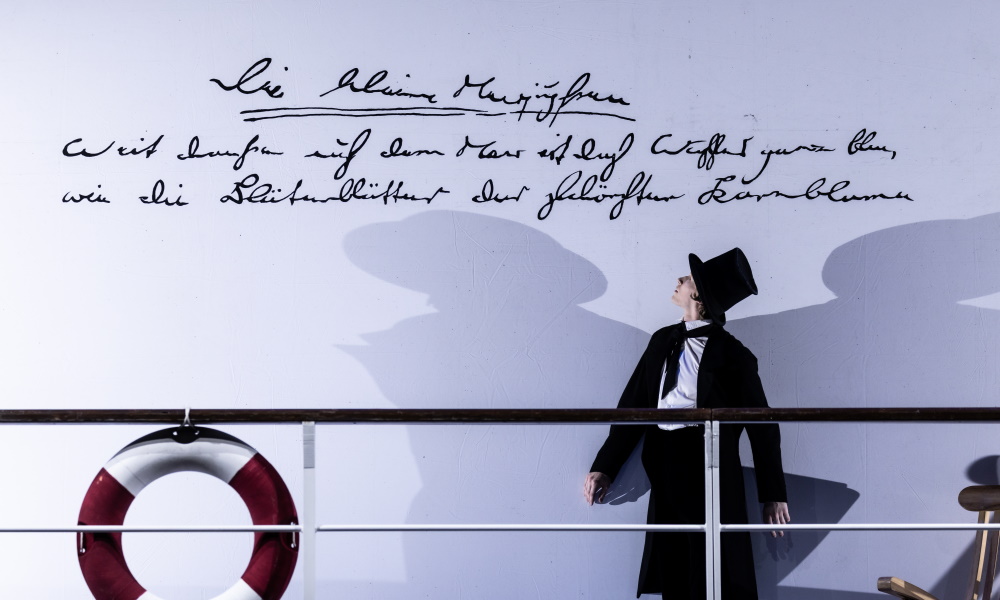 Die kleine Meerjungfrau
Weit draußen auf dem Meer ist das Wasser ganz blau,
wie die Blütenblätter der schönsten Kornblume